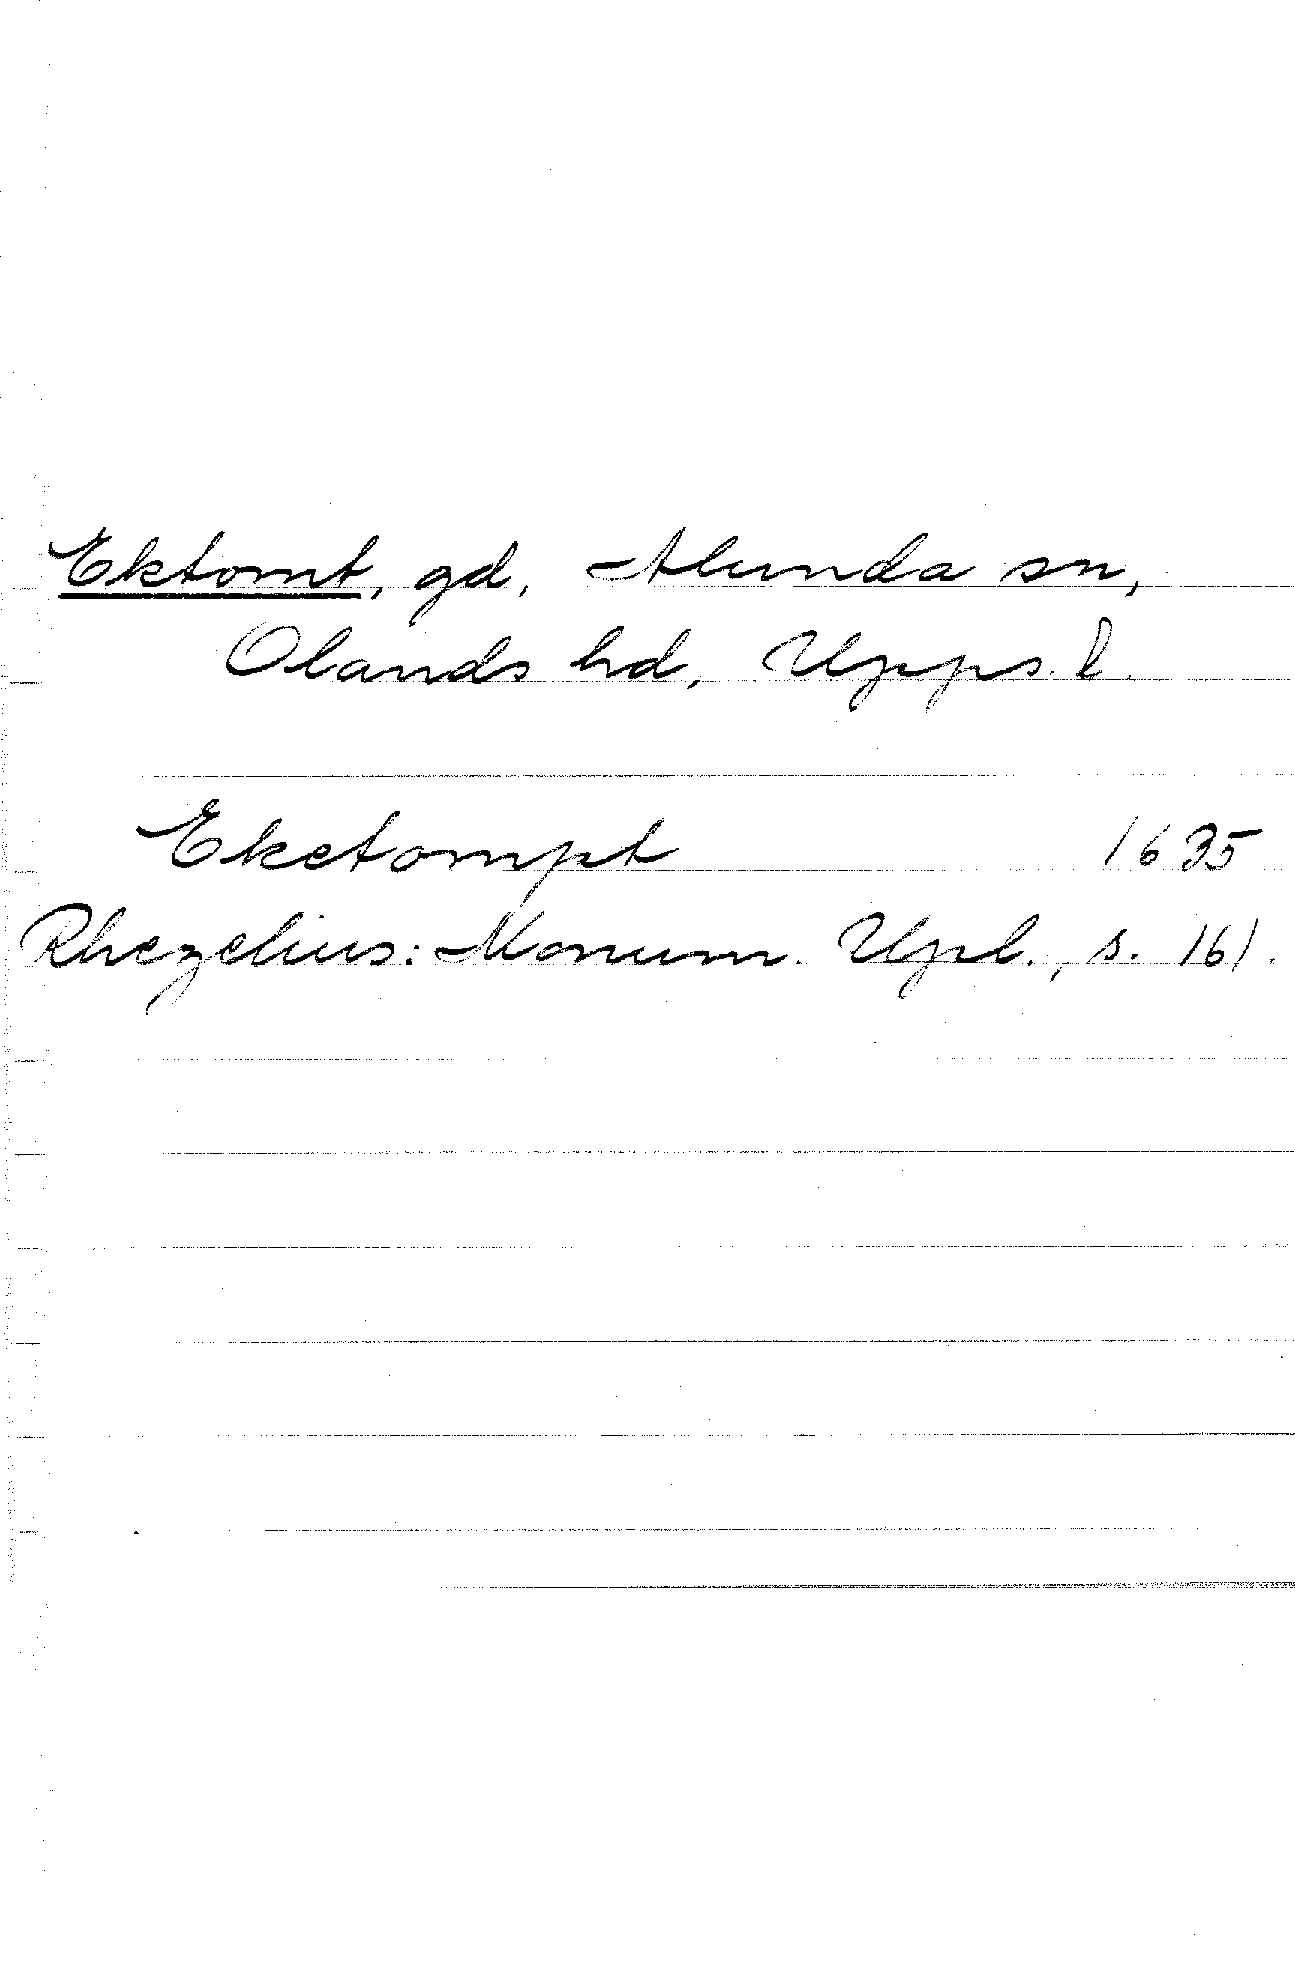 Ektomt, gd, Alunda sn,
Olands hd, Upps. l.
Eketompt 1635
Rhezelius: Monum. Upl., s. 161.